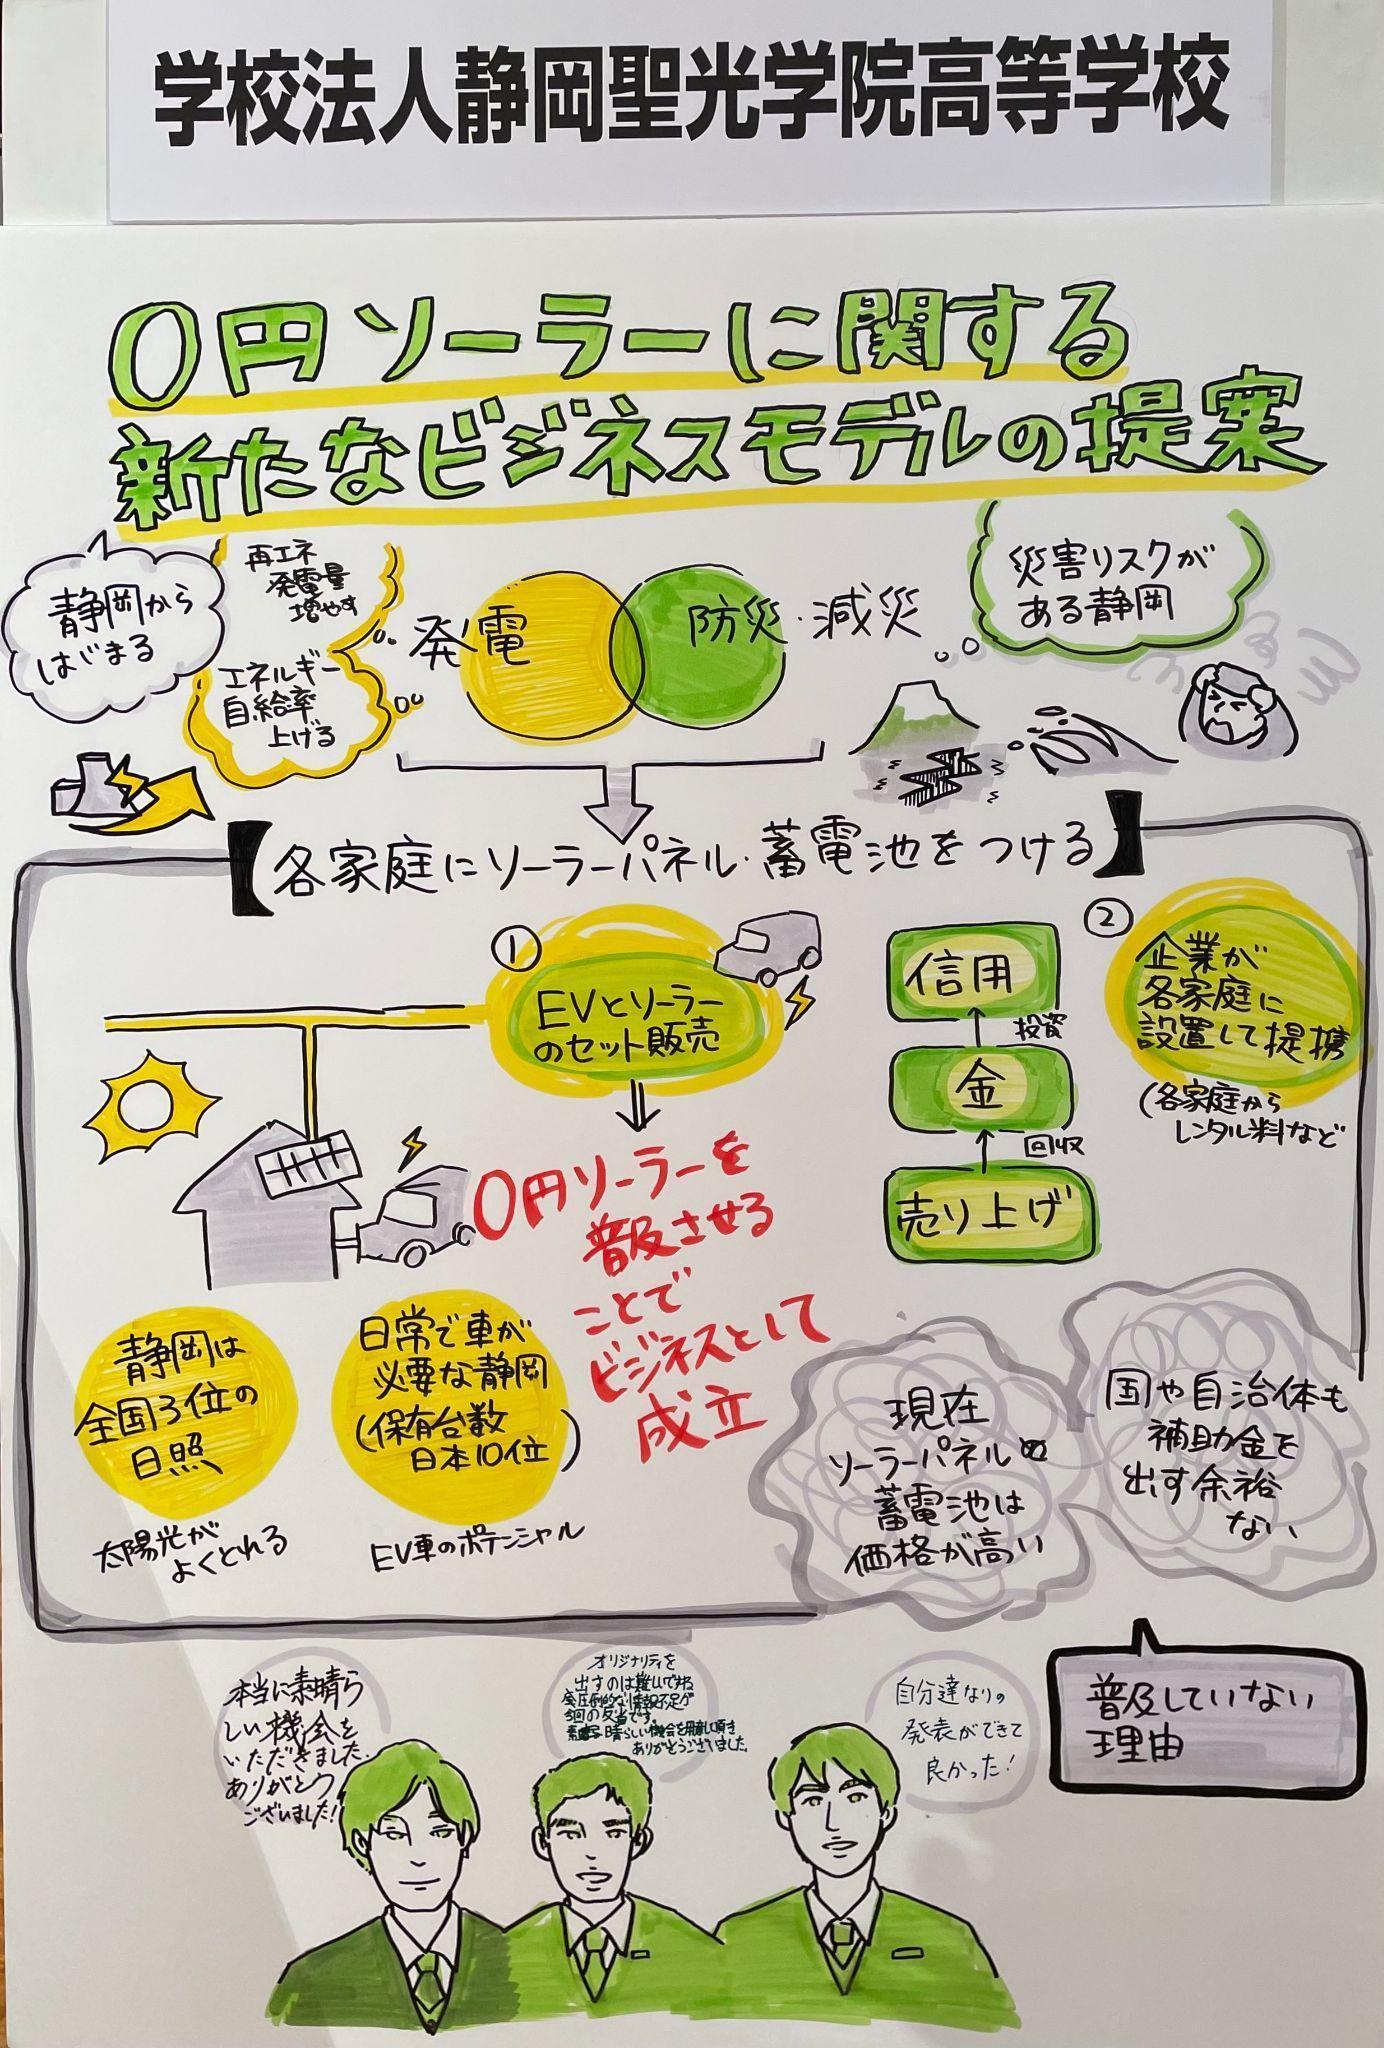 学校法人静岡聖光学院高等学校
0円ソーラーに関する
新たなビジネスモデルの提案
静岡から
はじまる
再エネ
発電量
増やす
エネルギー
自給率
上げる
発電
防災・減災
災害リスクが
ある静岡
【各家庭にソーラーパネル・蓄電池をつける】
①
EVとソーラー
のセット販売
0円ソーラーを
普及させる
ことで
ビジネスとして
成立
静岡は
全国3位の
日照
太陽光が
よくとれる
日常で車が
必要な静岡
(保有台数
日本10位)
EV車のポテンシャル
信用
投資
金
回収
売り上げ
②
企業が
各家庭に
設置して提携
(各家庭から
レンタル料など
現在
ソーラーパネルや
蓄電池は
価格が高い
国や自治体も
補助金を
出す余裕
ない
普及していない
理由
本当に素晴ら
しい機会を
いただきました.
ありがとう
ございました!
オリジナリティを
出すのは難しいですね
圧倒的な情報不足が
今回の反省です。
素晴らしい機会を用意して頂き
ありがとうございました。
自分達なりの
発表ができて
良かった!